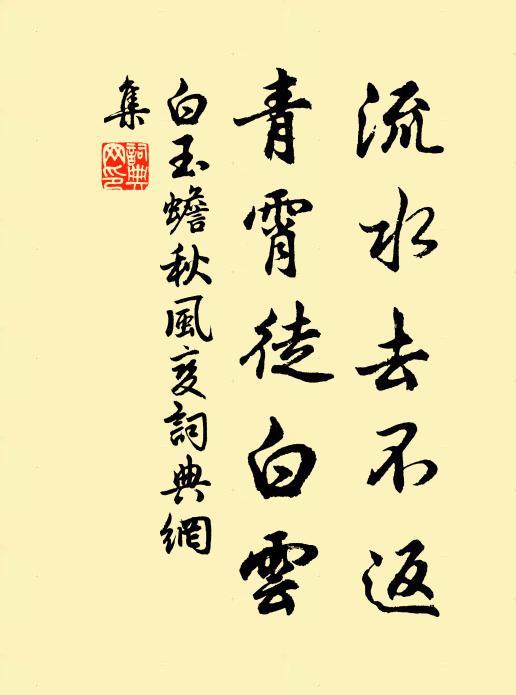 流水去不返
青霄徒白雲
白玉蟾秋風变詞典網
集
詞典網印